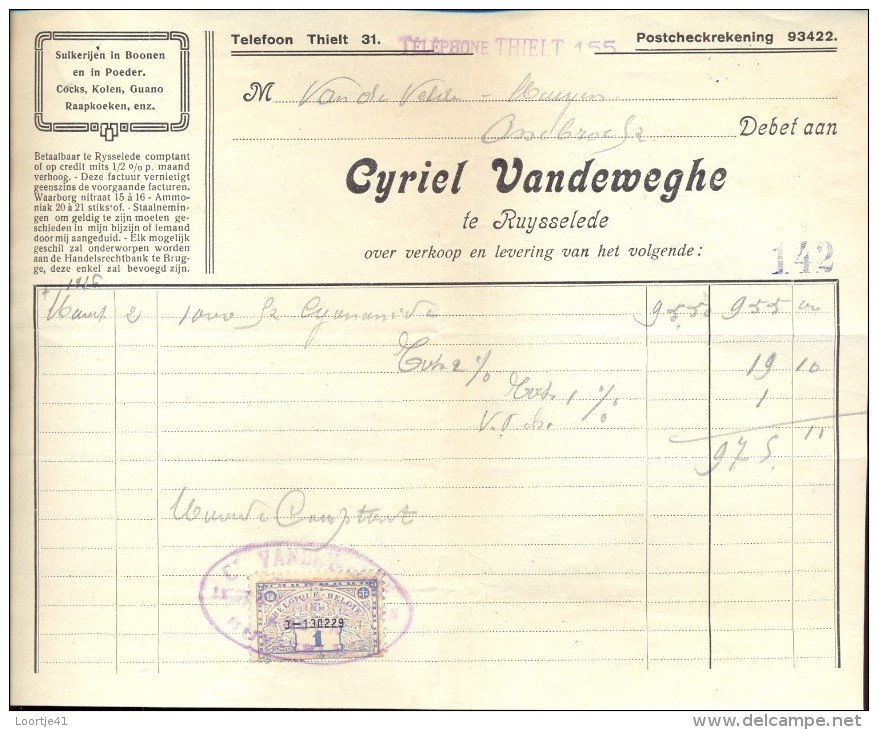 Telefoon Thielt 31. TÉLÉPHONE THIELT 155 Postcheckrekening 93422.
Suikerijen in Boonen
en in Poeder.
Cocks, Kolen, Guano
Raapkoeken, enz.
M Van de Velde -
Assebroek Debet aan
Cyriel Vandeweghe
te Ruysselede
over verkoop en levering van het volgende:
142
Betaalbaar te Rysselede comptant
of op credit mits 1/2 % p. maand
verhoog. - Deze factuur vernietigt
geenszins de voorgaande facturen.
Waarborg nitraat 15 à 16 - Ammo-
niak 20 à 21 stikstof. - Staalnemin-
gen om geldig te zijn moeten ge-
schieden in mijn bijzijn of iemand
door mij aangeduid. - Elk mogelijk
geschil zal onderworpen worden
aan de Handelsrechtbank te Brug-
ge, deze enkel zal bevoegd zijn.
1926
Maart 2 1000 Cyanamide 95,50 955 00
2 % 19 10
1 % 1
975 11
Comptant
C. VANDEWEGHE
BELGIQUE-BELGIË
J-130229
1
Loortje41